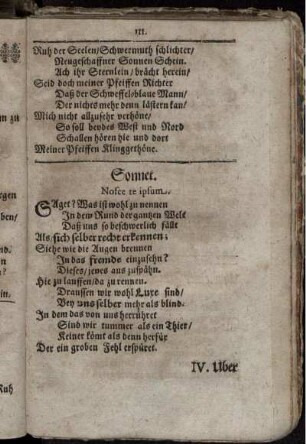 III.
Ruh der Seelen/Schwermuth schlichter/
Neugeschaffner Sonnen Schein.
Ach ihr Sternlein/ brächt herein/
Seid doch meiner Pfeiffen Richter
Daß der Schweffel-blaue Mann/
Der nichtes mehr denn lästern kan/
Mich nicht allzusehr verhöne/
So soll beydes West und Nord
Schallen hören hie und dort
Meiner Pfeiffen Klinggethöne.
Sonnet.
Nosce te ipsum.
SAget? Was ist wohl zu nennen
In dem Rund der gantzen Welt
Daß uns so beschwerlich fällt
Als/ sich selber recht erkennen;
Siehe wie die Augen brennen
In das frembde einzusehn?
Dieses/ jenes aus zuspähn.
Hie zu lauffen/ da zu rennen.
Draussen wir wohl Luxe sind/
Bey uns selber mehr als blind.
In dem das von uns herrühret
Sind wir tummer als ein Thier/
Keiner kömt als denn herfür
Der ein groben Fehl erspüret.
IV. Uber
en zu
egen
ben/
nd.
n?
in.
Ruh